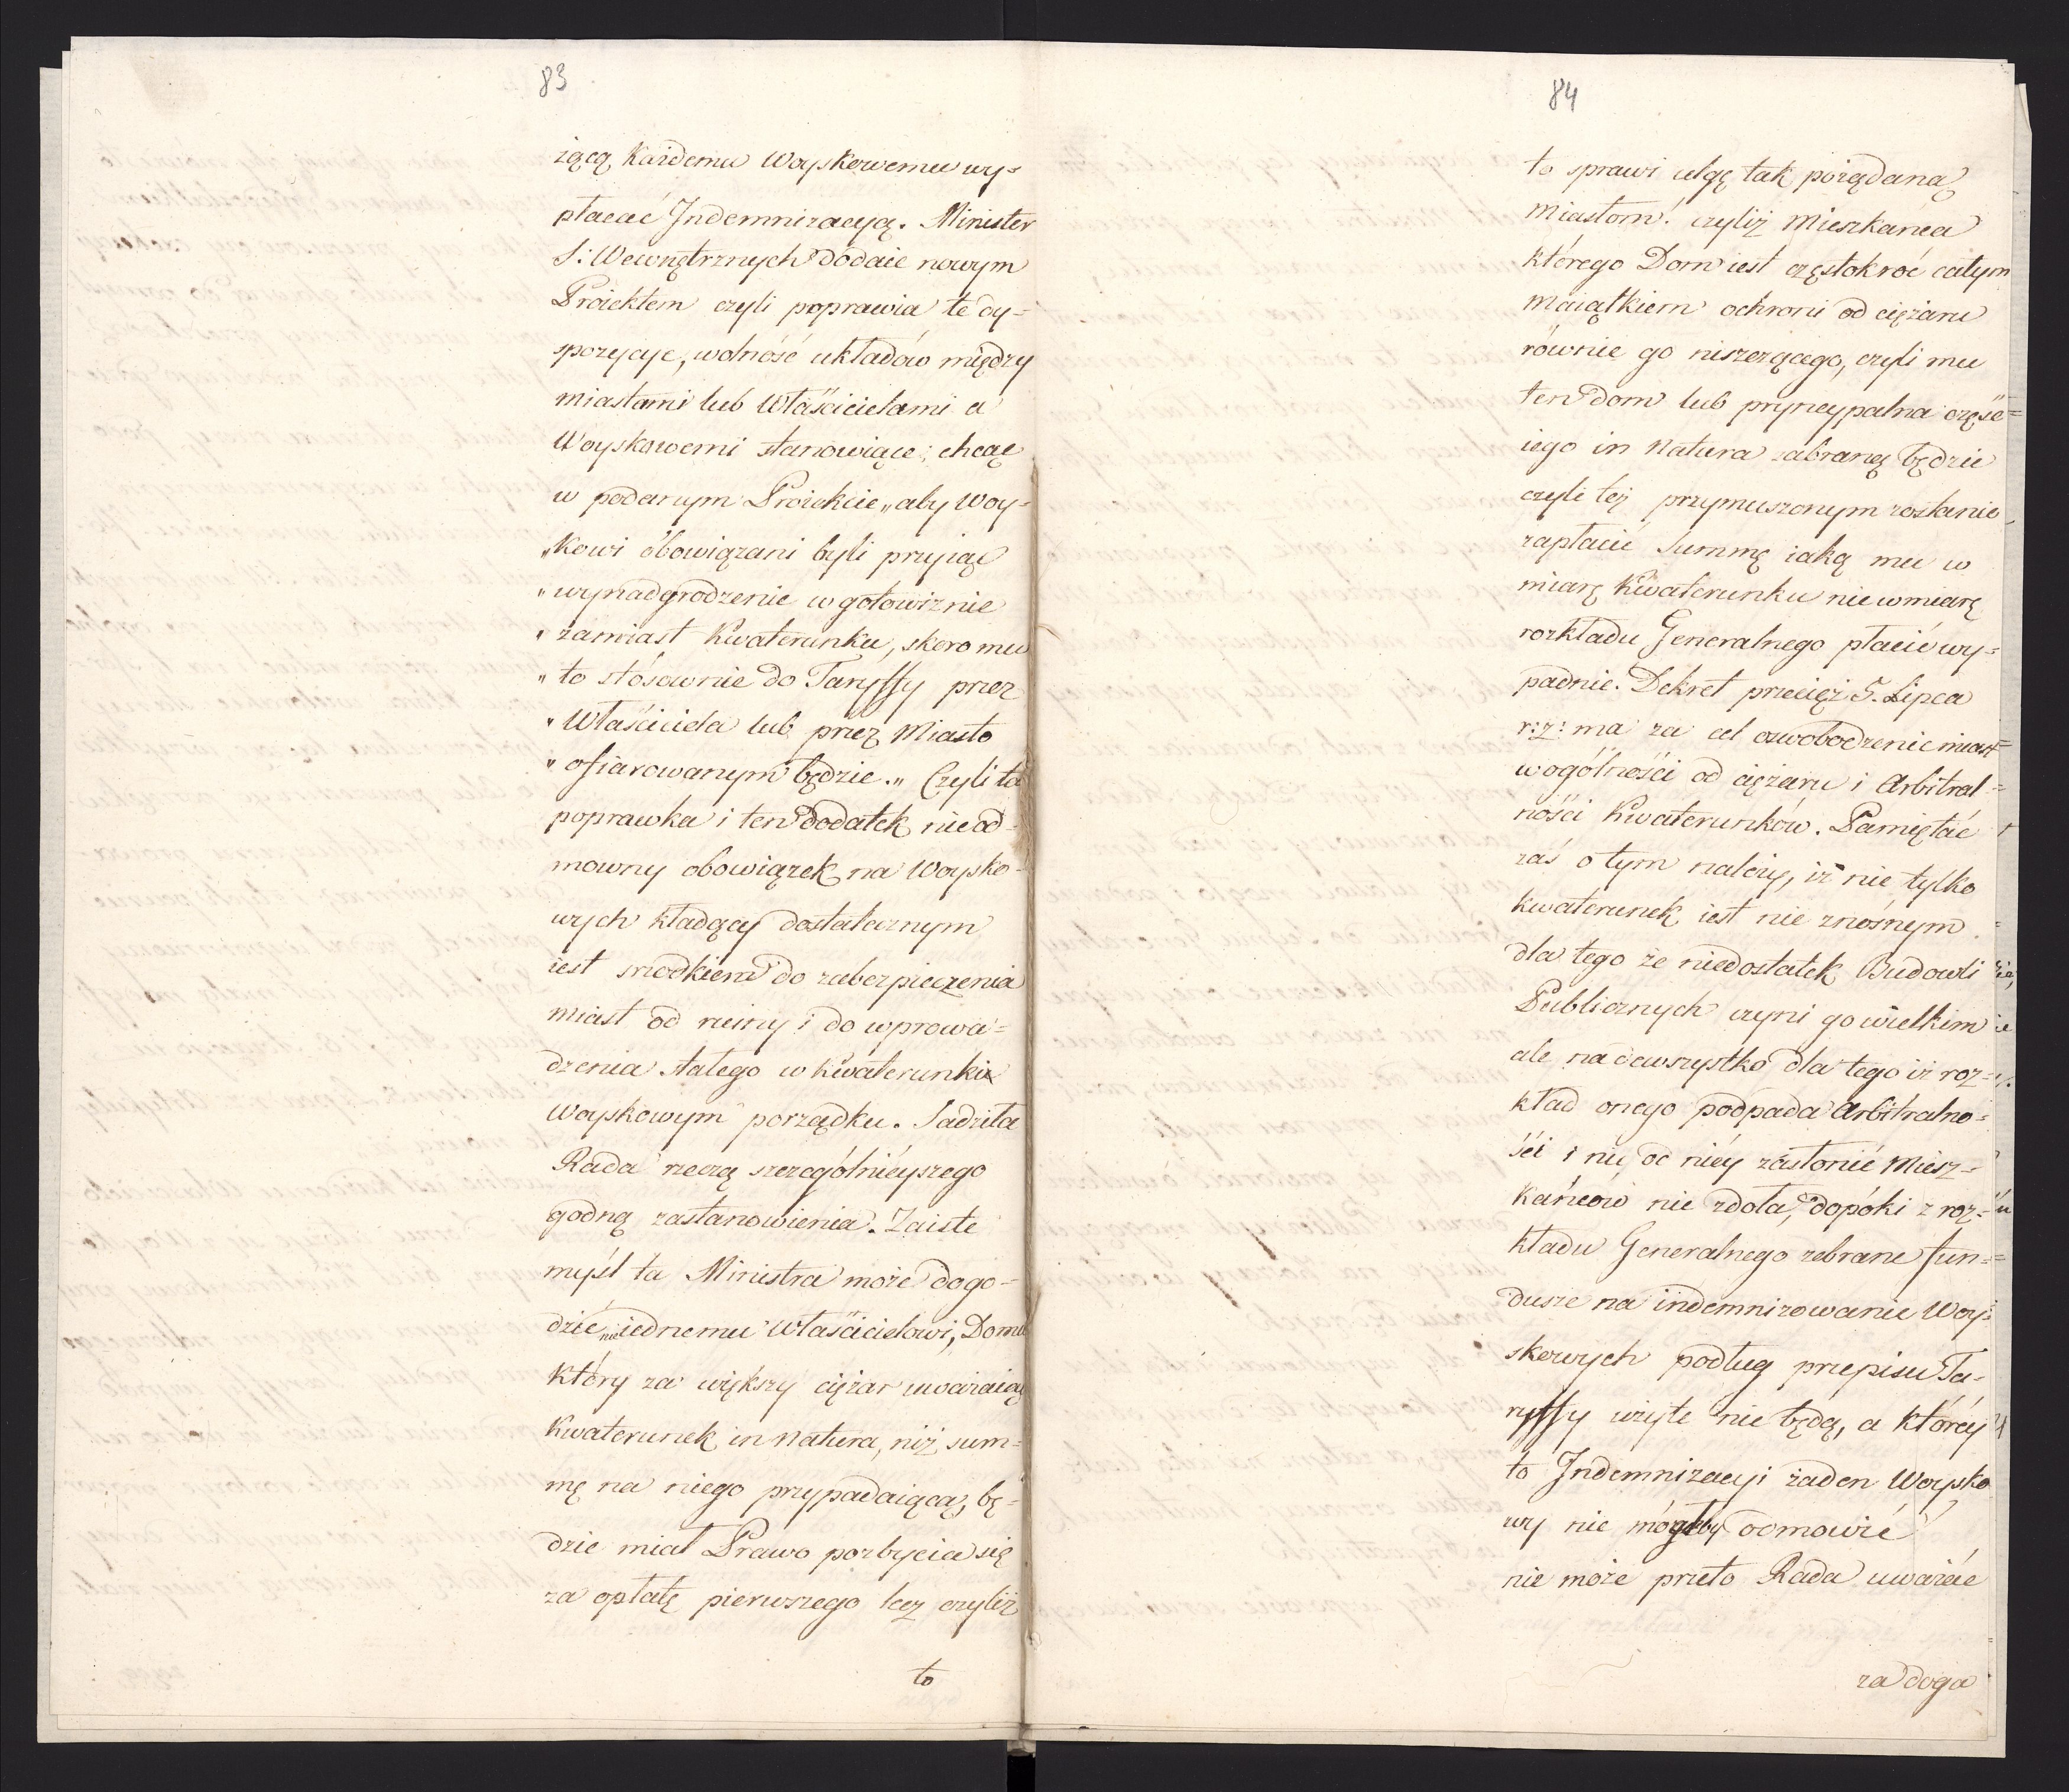 83
żącą Każdemu Woyskowemu wy=
płacać Indemnizacyą. Minister
S: Wewnętrznych dodaie nowym
Proiektem czyli poprawia te dy=
spozycye, wolność układów między
miastami lub Właścicielami a
Woyskowemi stanowiące; chcąc
w podanym Proiekcie „aby Woy=
„kowi obowiązani byli przyiąć
„wynadgrodzenie w gotowiznie
„zamiast Kwaterunku, skoro mu
„to stósownie do Taryffy przez
„Właściciela lub przez Miasto
„ofiarowanym będzie.„ Czyli ta
poprawka i ten dodatek nieod=
mowny obowiązek na Woysko=
wych kładący dostatecznym
iest srzodkiem do zabezpieczenia
miast od ruiny i do wprowa=
dzenia stałego w Kwaterunku
woyskowym porządku. Sądziła
Rada rzeczą szczególnieyszego
godną zastanowienia. Zaiste
myśl ta Ministra może dogo=
dzić nie iednemu Właścicielowi, Domu
który za większy ciężar uważaiąc
Kwaterunek in natura, niż sum=
mę na niego przypadaiącą, bę=
dzie miał Prawo pozbycia się
za opłatę pierwszego lecz czyliż
to
84
to sprawi ulgę tak pożądaną
Miastom! czyliż Mieszkańca
którego Dom iest częstokroć całym
Maiątkiem ochroni od ciężaru
równie go niszczącego, czyli mu
ten dom lub pryncypalna część
iego in Natura zabraną będzie
czyli też przymuszonym zostanie
zapłacić Summę iaką mu w
miarę Kwaterunku nie w miarę
rozkładu Generalnego płacić wy=
padnie. Dekret przecięż 5. Lipca
r: z: ma za cel oswobodzenie miast
w ogólności od ciężaru i Arbitral=
ności Kwaterunków. Pamiętać
zaś o tym należy, iż nie tylko
kwaterunek iest nie znośnym
dla tego że niedostatek Budowli
Publicznych czyni go wielkim
ale nadewszystko dla tego iż roz=
kład onego podpada Arbitralno=
ści i nic od niéy zasłonić Miesz=
kańców nie zdoła, dopóki z roz=
kładu Generalnego zebrane fun=
dusze na indemnizowanie Woy=
skowych podług przepisu Ta=
ryffy użyte nie będą, a któréy
to Indemnizacyi żaden Woysko
wy nie mógłby odmowić
nie może przeto Rada uważać
za doga